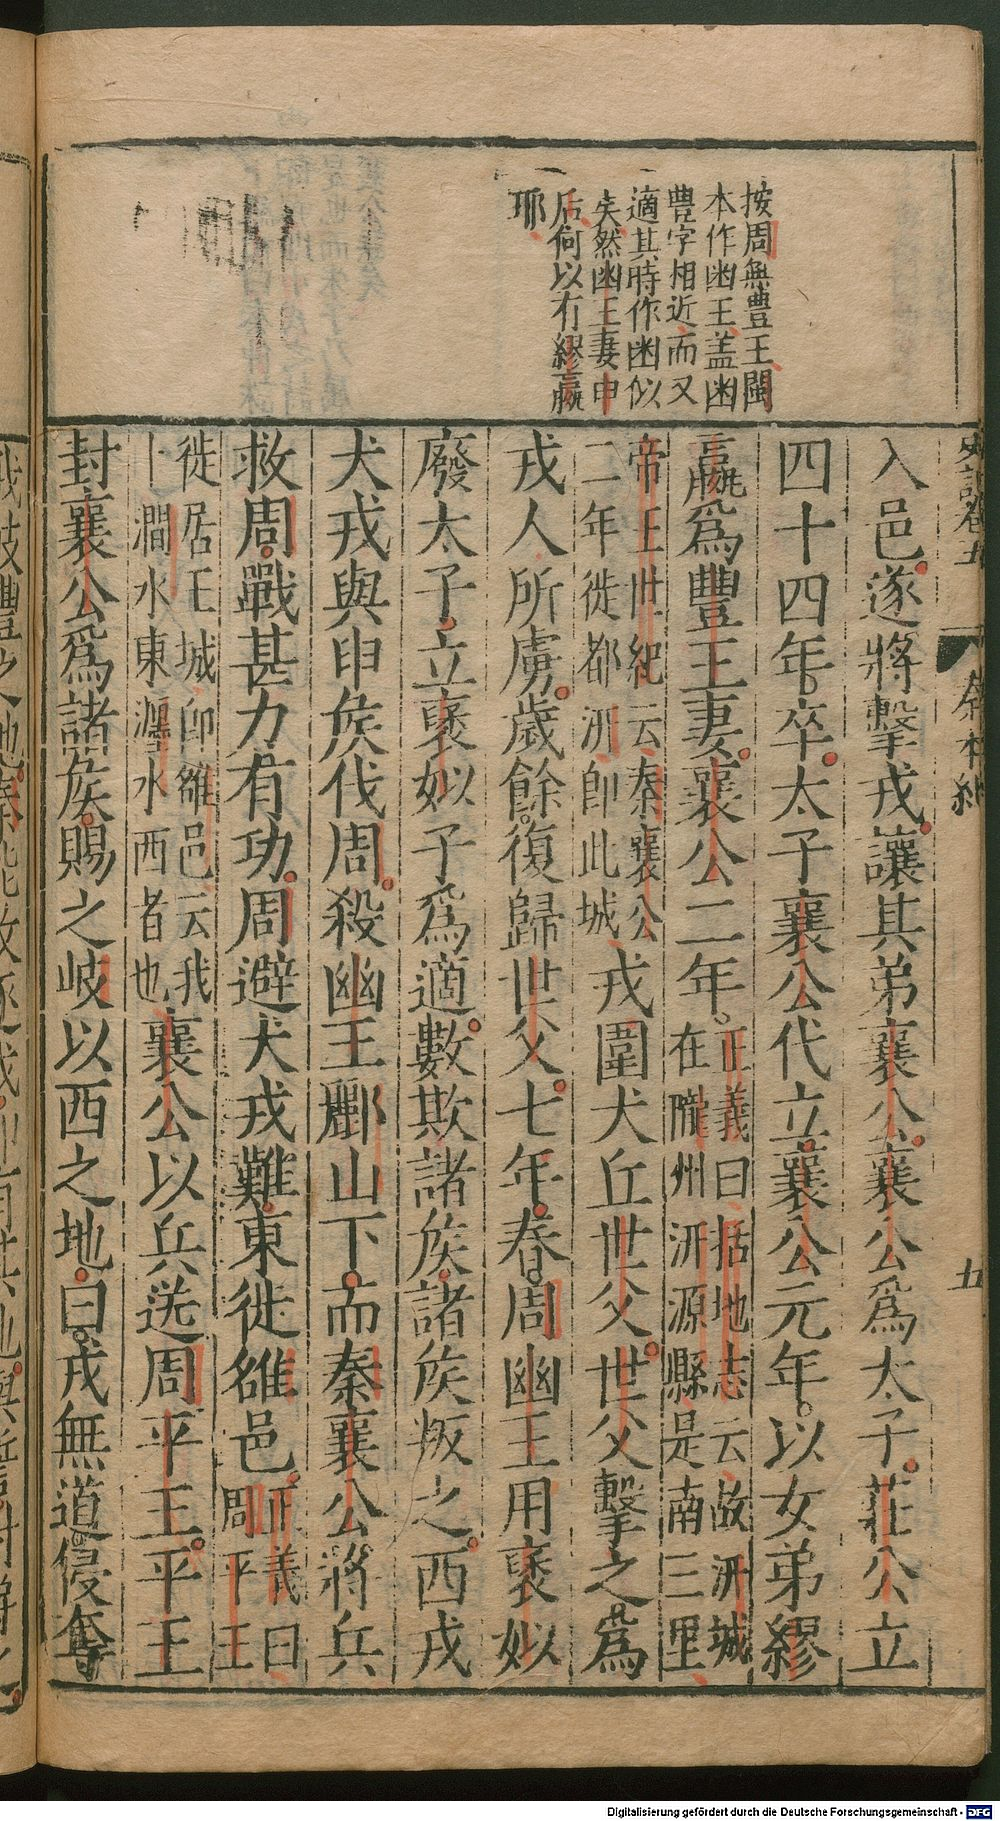 按周無豊王閩
本作幽王蓋幽
豊字相近而又
適其時作幽似
矣然幽王妻申
后何以有繆嬴
耶
史記卷五
秦本紀
五
入邑遂將擊戎讓其弟襄公襄公爲太子莊公立
四十四年卒太子襄公代立襄公元年以女弟繆
嬴爲豐王妻襄公二年正義曰括地志云故汧城在隴州汧源縣是南三里
帝王世紀云秦襄公二年徙都汧卽此城戎圍犬丘世父世父擊之爲
戎人所虜歲餘復歸世父七年春周幽王用褒姒
廢太子立褒姒子爲適數欺諸侯諸侯叛之西戎
犬戎與申侯伐周殺幽王酈山下而秦襄公將兵
救周戰甚力有功周避犬戎難東徙雒邑正義曰周平王
徙居王城卽雒邑云我卜澗水東瀍水西者也襄公以兵送周平王平王
封襄公爲諸侯賜之岐以西之地曰戎無道侵奪
Digitalisierung gefördert durch die Deutsche Forschungsgemeinschaft - DFG